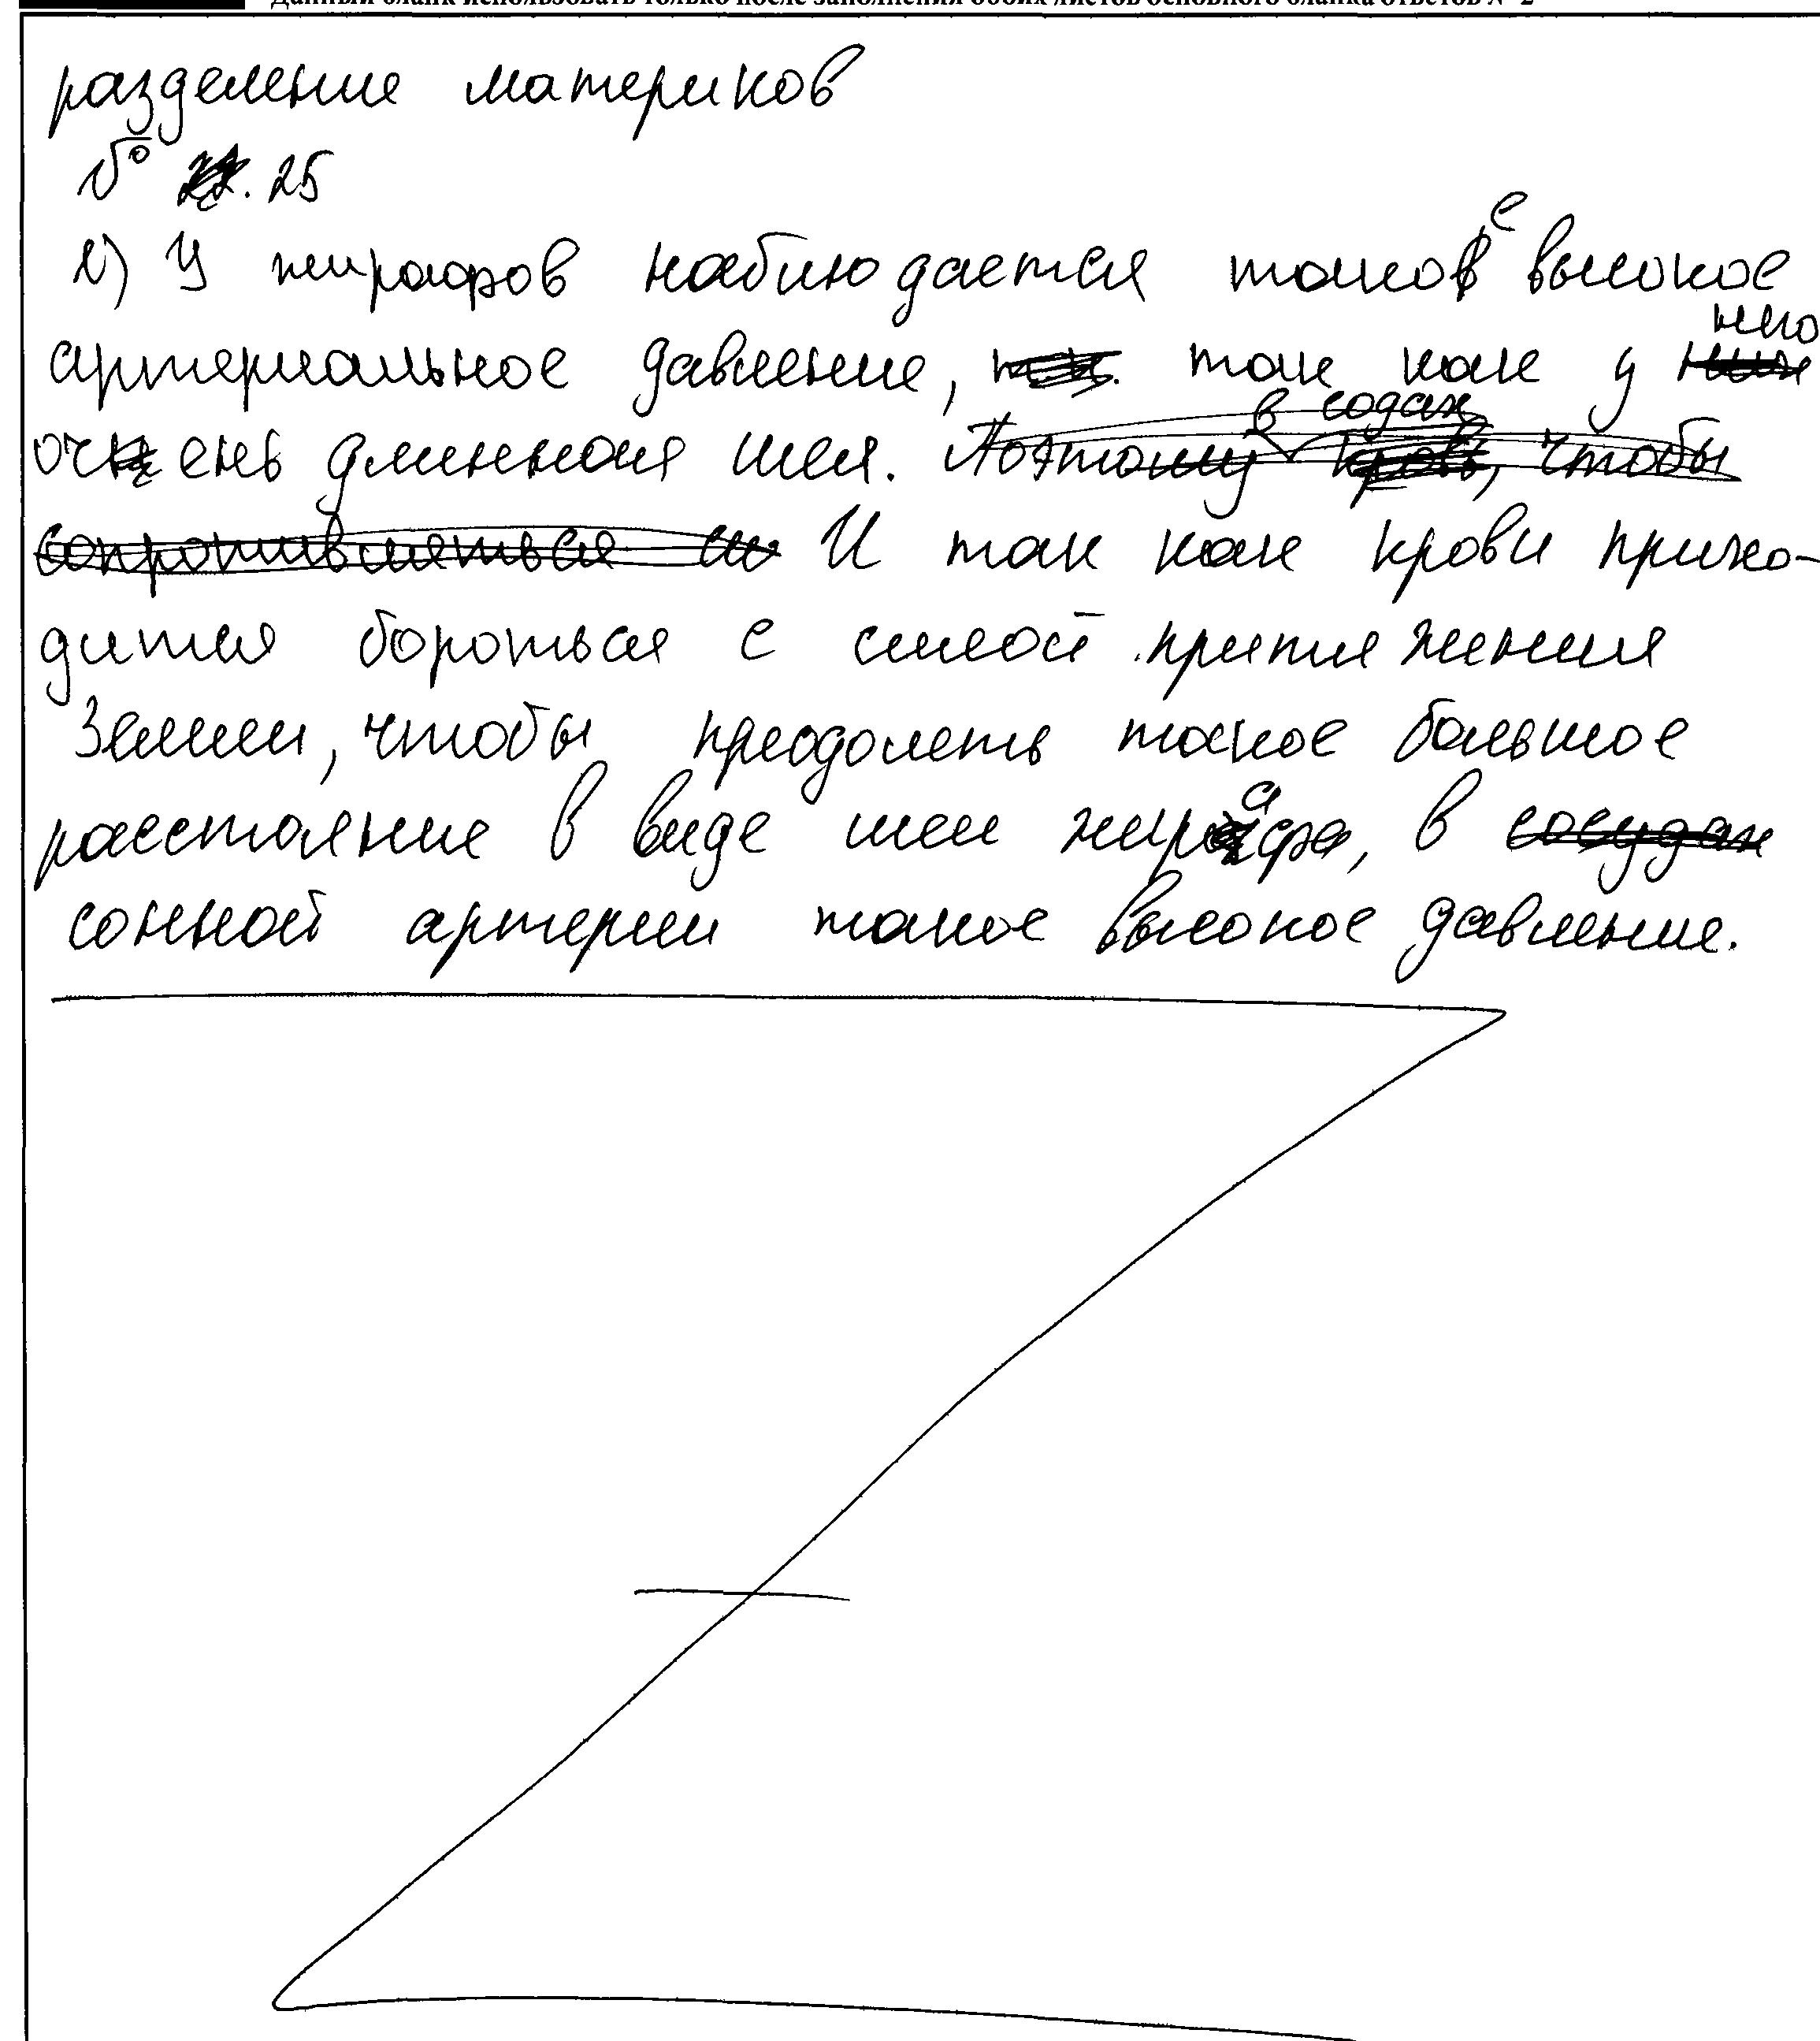 Данный бланк использовать только после заполнения обоих листов основного бланка ответов № 2
разделение материков
№ 25
1) У жирафов наблюдается такое высокое
артериальное давление, так как у него
очень длинная шея. Поэтому в содах, чтобы
сопротивляться И так как крови прихо-
дится бороться с силой притяжения
Земли, чтобы преодолеть такое большое
расстояние в виде шеи жирафа, в сосудах
сонной артерии такое высокое давление.